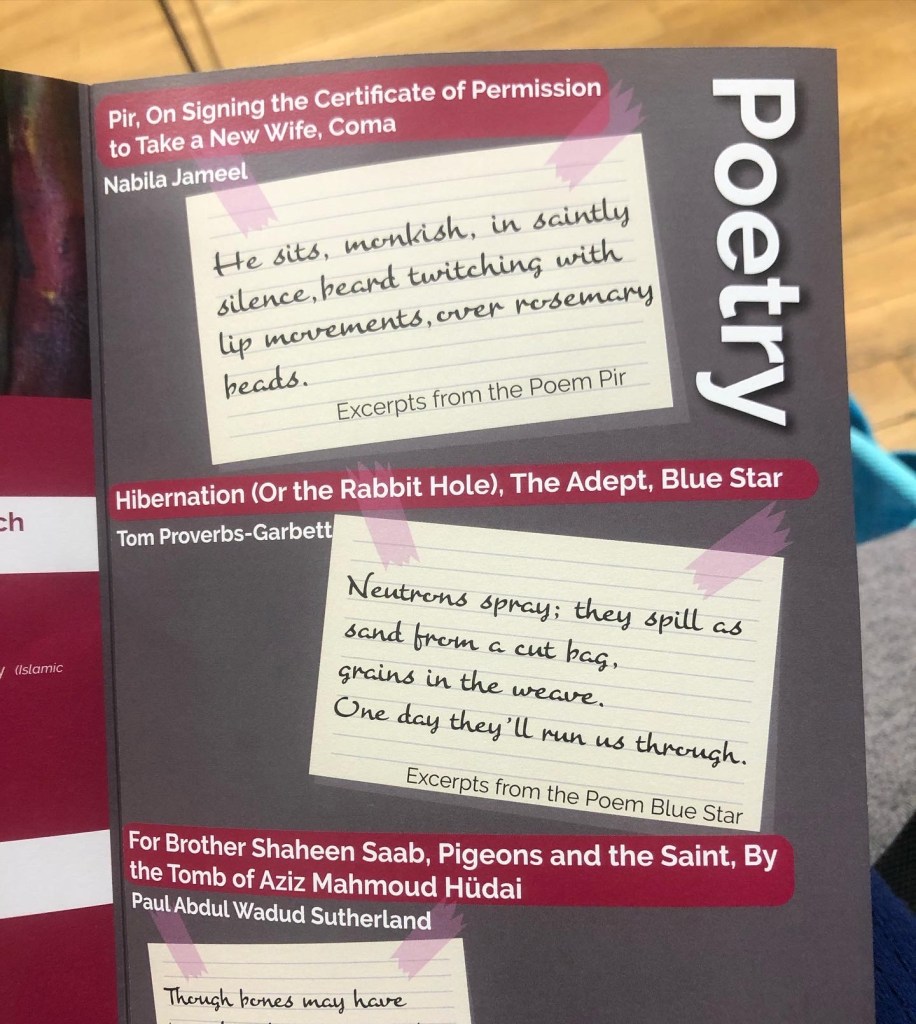 Poetry
Pir, On Signing the Certificate of Permission
to Take a New Wife, Coma
Nabila Jameel
He sits, monkish, in saintly
silence, beard twitching with
lip movements, over rosemary
beads.
Excerpts from the Poem Pir
Hibernation (Or the Rabbit Hole), The Adept, Blue Star
Tom Proverbs-Garbett
Neutrons spray; they spill as
sand from a cut bag,
grains in the weave.
One day they'll run us through.
Excerpts from the Poem Blue Star
For Brother Shaheen Saab, Pigeons and the Saint, By
the Tomb of Aziz Mahmoud Hüdai
Paul Abdul Wadud Sutherland
Though bones may have
ch
(Islamic